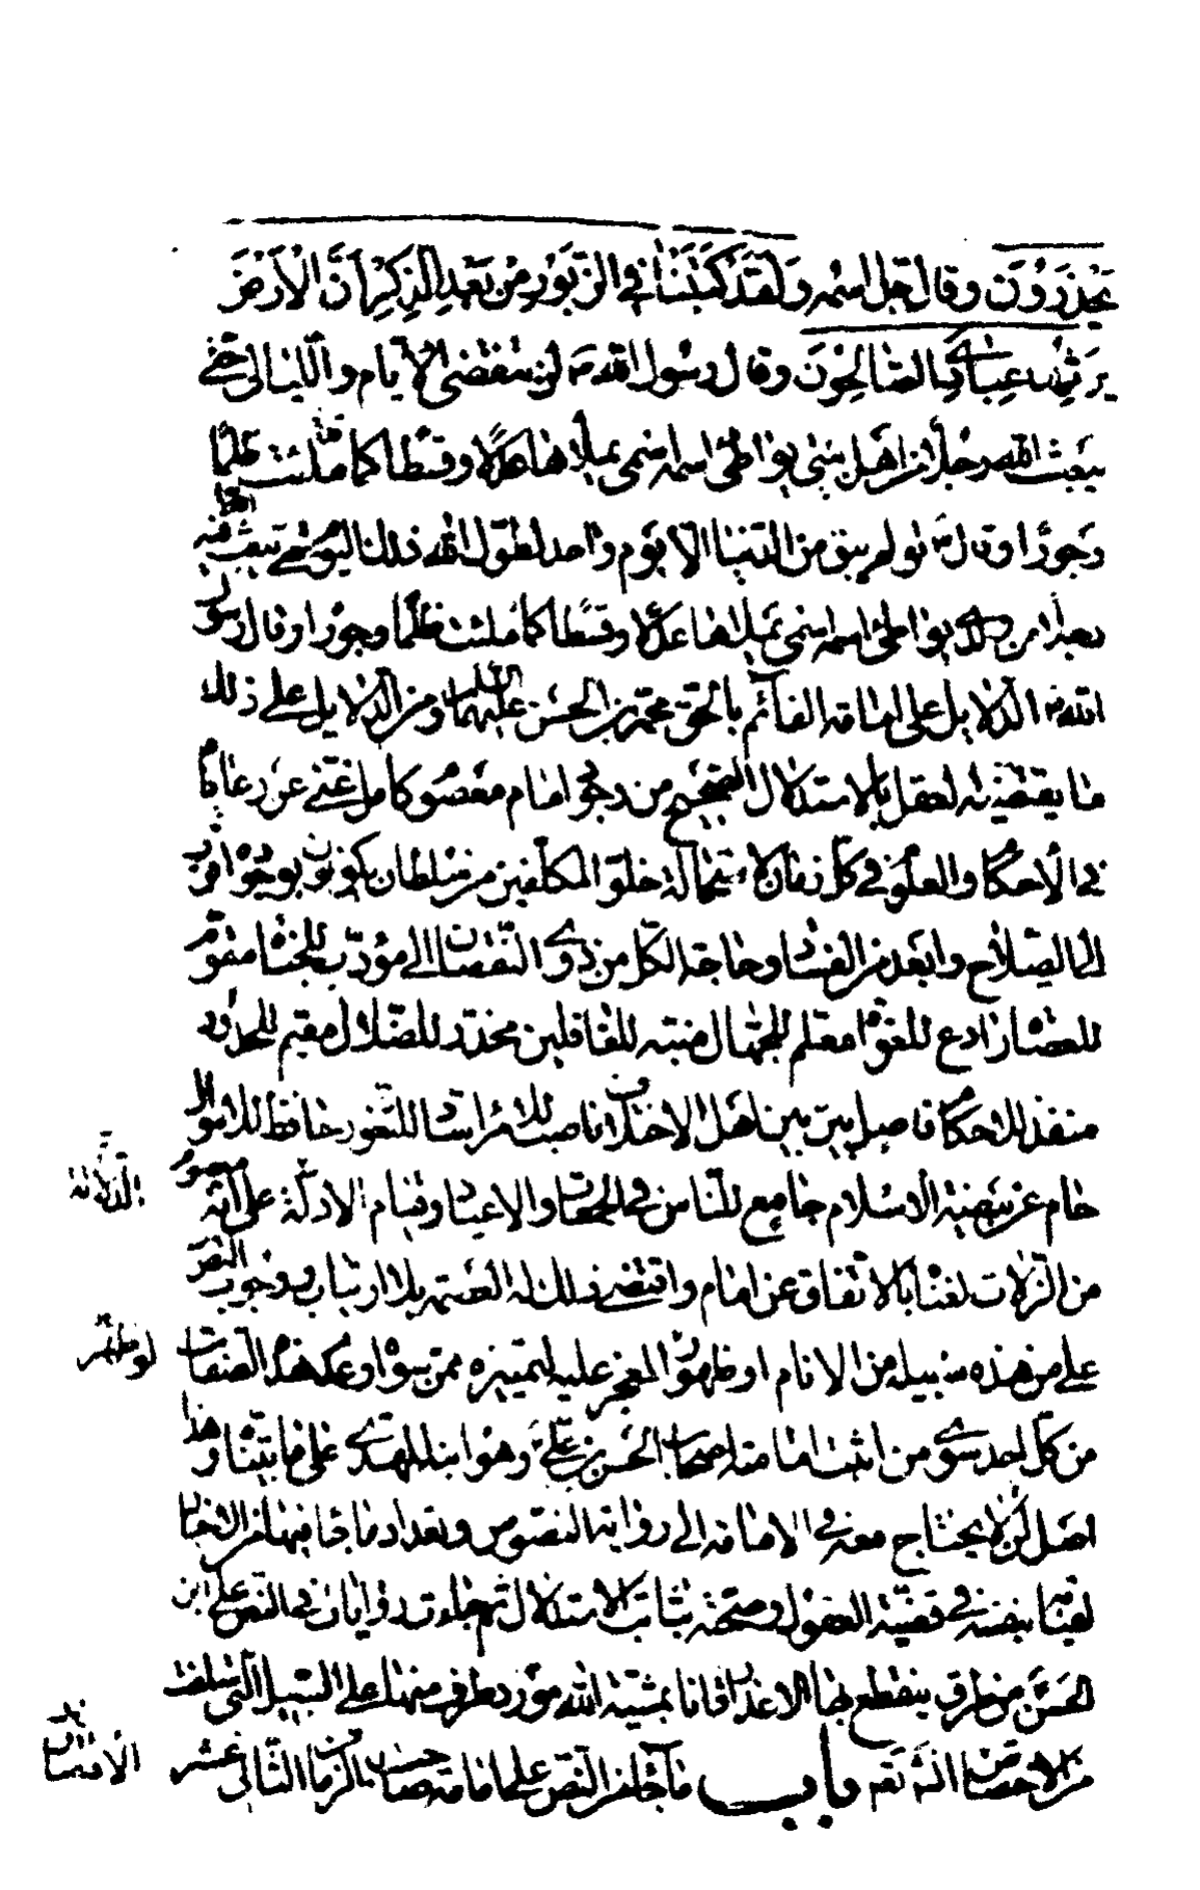 يَحْذَرُوْنَ وقال جل اسمه وَلَقَدْ كَتَبْنَا فِي الزَّبُوْرِ مِنْ بَعْدِ الذِّكْرِ اَنَّ الْاَرْضَ
يَرِثُهَا عِبَادِيَ الصَّالِحُوْنَ وقال رسول الله ص لن تنقضى الايام والليالى حتى
يبعث الله رجلا من اهل بيتى يواطئ اسمه اسمى يملاها عدلا وقسطا كما ملئت ظلما
وجورا وقال ص لو لم يبق من الدنيا الا يوم واحد لطول الله ذلك اليوم حتى يبعث فيه
رجلا من ولدى يواطئ اسمه اسمى يملاها عدلا وقسطا كما ملئت ظلما وجورا وقال رسول
الله ص الدلايل على امامة القائم بالحق محمد بن الحسن عليهما السلام ومن الدلايل على ذلك
ما يقتضيه العقل بالاستدلال الصحيح من وجود امام معصوم كامل غنى عن رعاياه
فى الاحكام والعلوم فى كل زمان لاستحالة خلو المكلفين من سلطان يكونون بوجوده اقرب
الى الصلاح وابعد من الفساد وحاجة الكل من ذوى النقصان الى مؤدب للجناة مقوم
للعصاة رادع للغواة معلم للجهال منبه للغافلين محذر للضلال مقيم للحدود
منفذ للاحكام فاصل بين اهل الاختلاف ناصب للامراء ساد للثغور حافظ للاموال
حام عن بيضة الاسلام جامع للناس فى الجمعات والاعياد وقيام الادلة على انه معصوم
من الزلات لغناه بالاتفاق عن امام واقتضى ذلك له العصمة بلا ارتياب ووجوب النص
على من هذه سبيله من الانام او ظهور المعجز عليه لتميزه ممن سواه وعدم هذه الصفات
من كل احد سوى من اثبت امامته اصحاب الحسن بن على ع وهو ابنه المهدى على ما بيناه وهذا
اصل لن يحتاج معه فى الامامة الى رواية النصوص وتعداد ما جاء فيها من الاخبار
لقيامه بنفسه فى قضية العقول وصحته بثابت الاستدلال ثم جاءت روايات فى النص على ابن
الحسن ع من طرق ينقطع بها الاعذار وانا بمشية الله مورد طرف منها على السبيل التى سلفت
من الاختصار انشاء الله تعه باب ما جاء من النص على امامة صاحب الزمان الثانى عشر